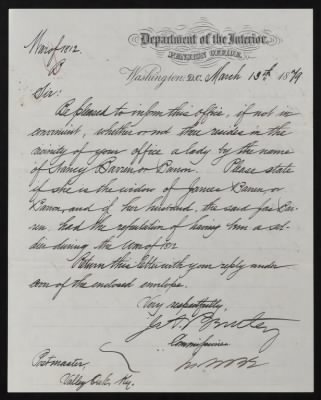 Department of the Interior,
PENSION OFFICE,
War of 1812
B
Washington, D.C. March 13th, 1879
Sir:
Be pleased to inform this office, if not in
convenient, whether or not there resides in the
vicinity of your office a lady by the name
of Nancy Barren or Baron. Please state
if she is the widow of James Baren, or
Baron, and if her husband, the said Jas Bar-
ren, had the reputation of having been a sol-
dier during the War of 1812
Return this letter with your reply under
cover of the enclosed envelope.
Very respectfully,
Bentley
Commissioner
Postmaster,
Valley Ky.